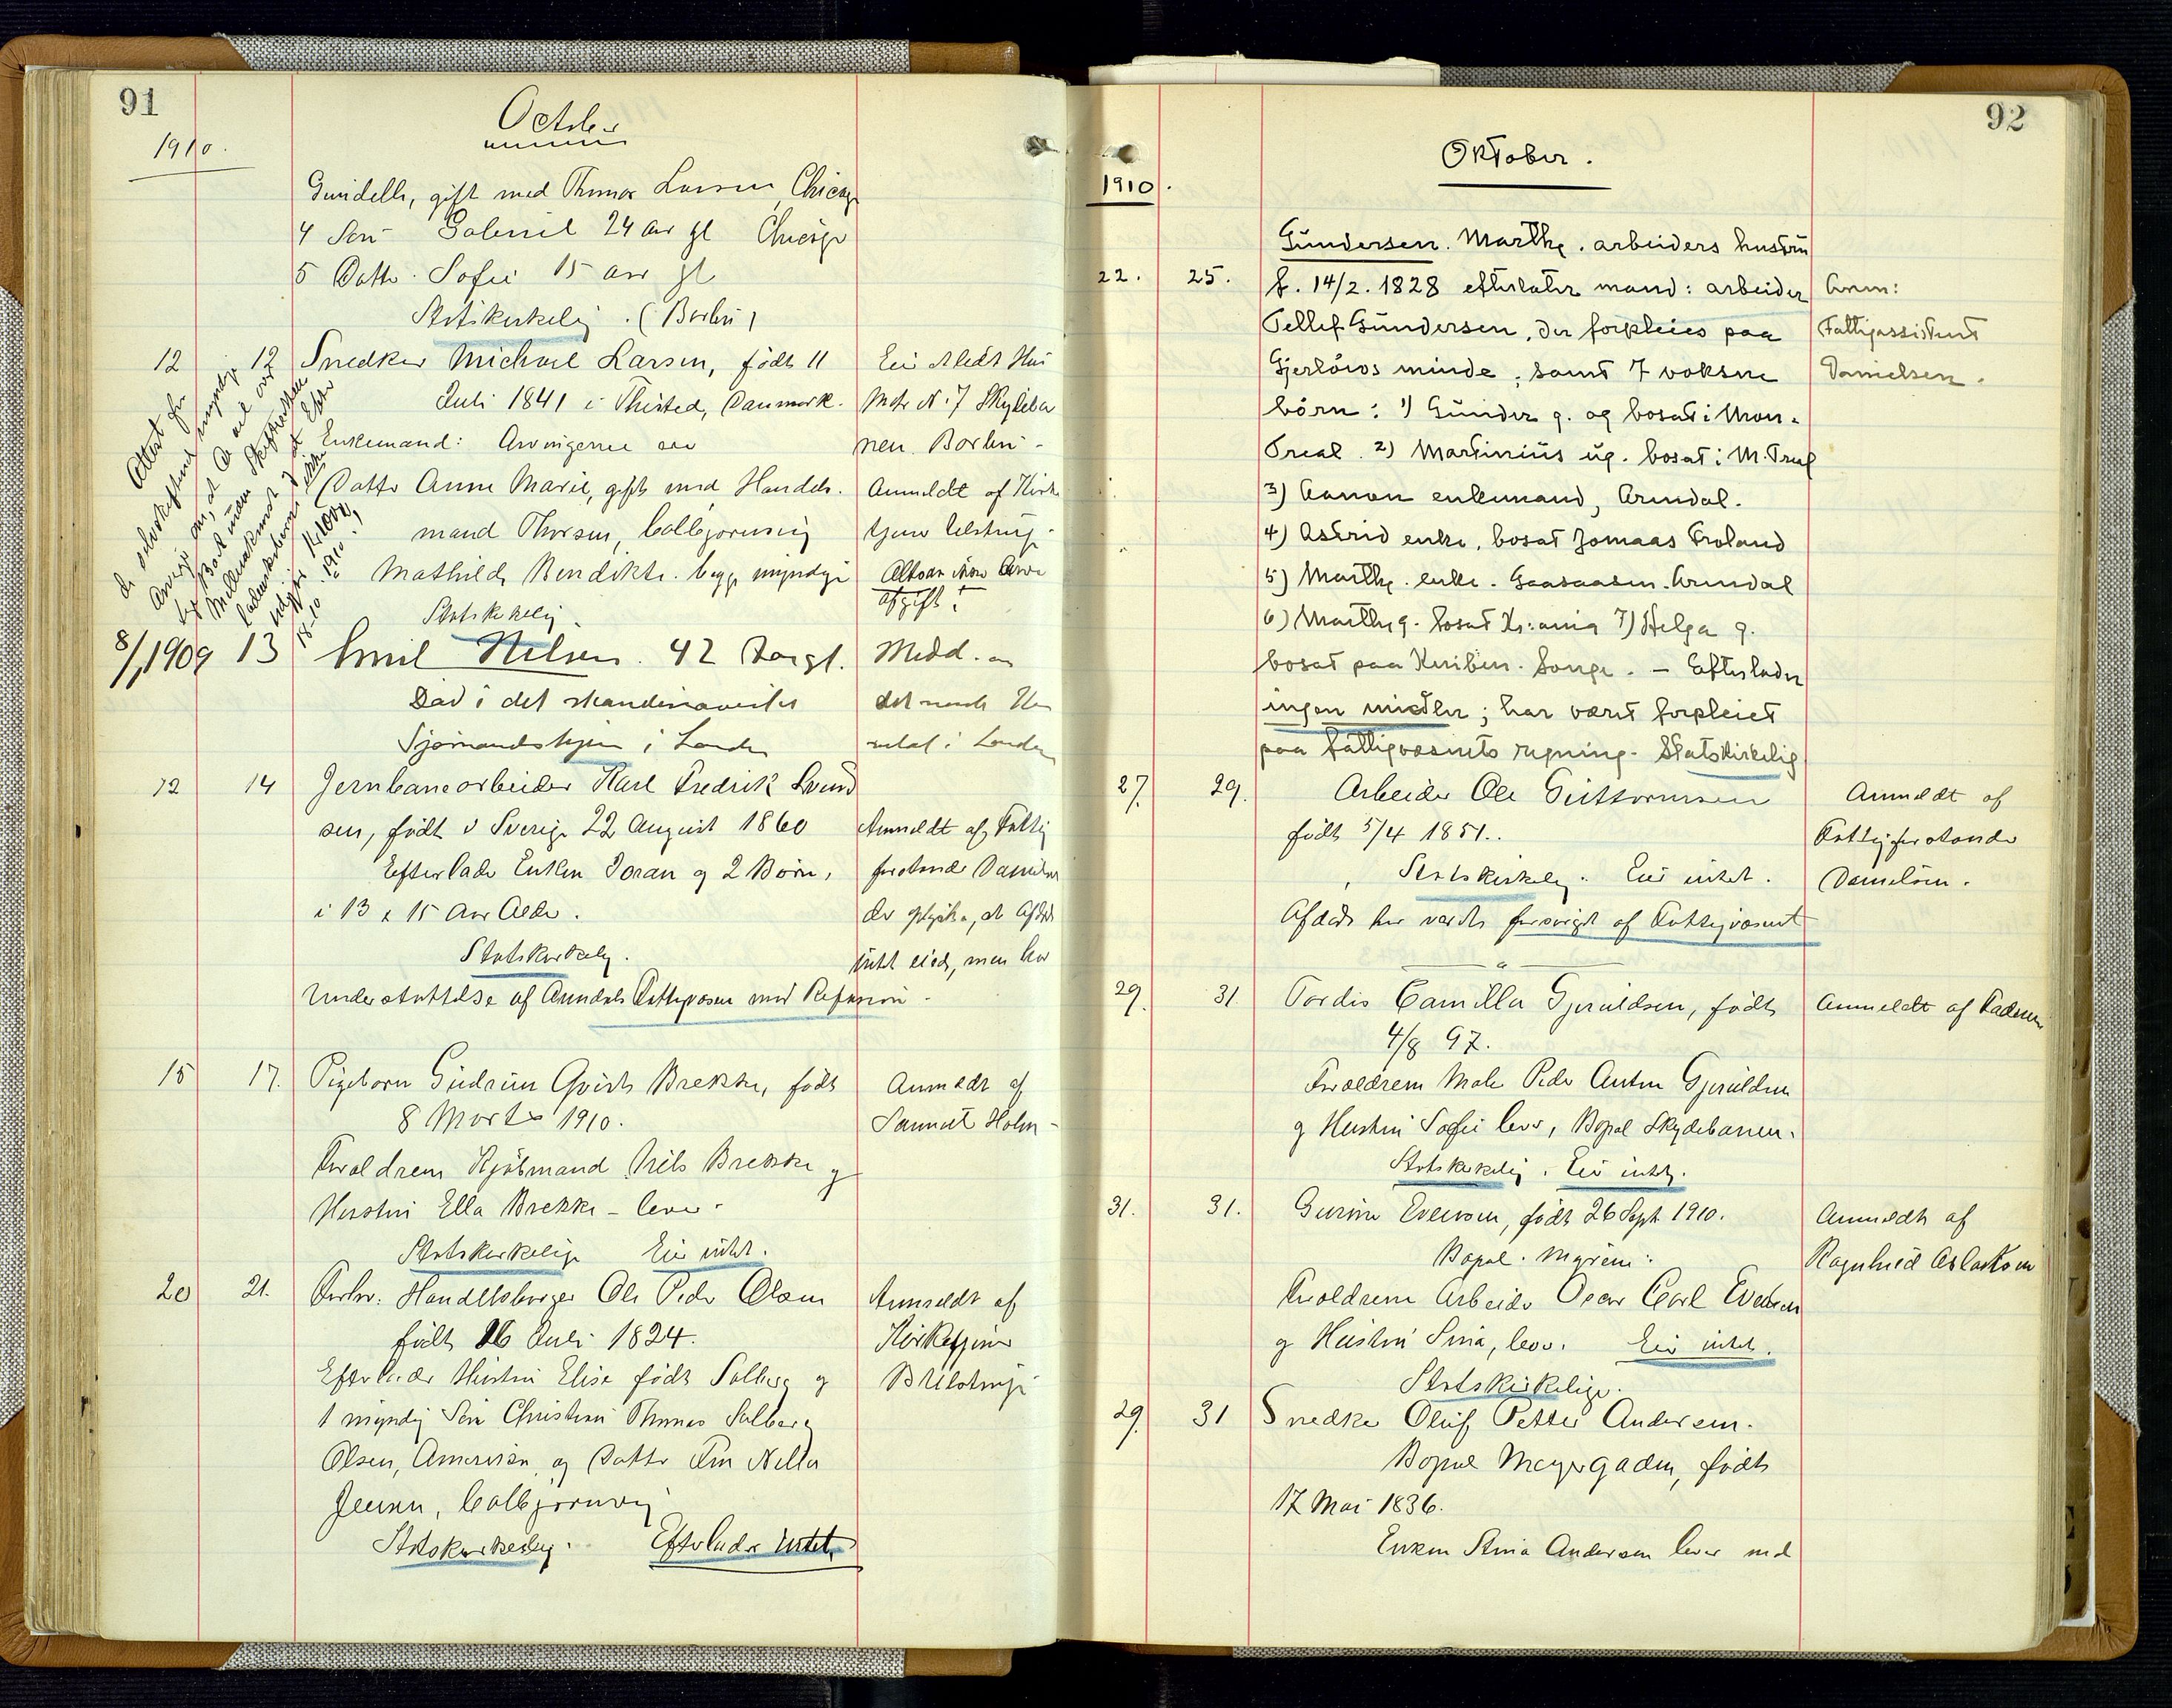 91
October
1910.
gift med Thomas Larsen, Chicago
4 Søn Gabriel 24 aar gl Chicago
5 Datter Sofie 15 aar gl
Statskirkelig. (Barbu)
12 12 Snedker Michael Larsen, født 11
Juli 1841 i Thisted, Danmark.
Enkemand: Arvingerne er
Datter Anne Marie, gift med Handels-
mand Thorsen, Colbjørnsvig
Mathilde Bendikte. begge myndige
Statskirkelig
Eier
Matr N. 7 Skyteba
nen. Barbu.
Anmeldt af Kirke
tjener Ulstrup.
Altsaa ikke Arve
afgift!
Attest for
8/1 1909 13 Emil Nilsen. 42 Aar gl.
Død i det skandinaviske
Sjømandshjem i London
Medd. om
det norske
i London
12 14 Jernbanearbeider Karl Fredrik Svend
sen, født i Sverige 22 August 1860
Efterlader Enken Joran og 2 Børn,
i 13 & 15 Aars Alder.
Statskirkelig.
Understøttelse af Arendals Fattigvæsen mod Refusion.
Anmeldt af Fattig
forstander Danielsen
der oplyste, at Afdøde
intet eiede, men har
15 17. Pigebarn Gudrun Brekke, født
8 Marts 1910.
Forældrene Kjøbmand Nils Brekke og
Hustru Ella Brekke - lever.
Statskirkelige Eier intet.
Anmeldt af
Samuel Holm
20 21. Forhv. Handelsborger Ole Peder Olsen
født 16 Juli 1824.
Efterlader Hustru Elise født Salberg og
1 myndig Søn Christian Thomas Salberg
Olsen, Amerika, og Datter Fru Nella
Jensen, Colbjørnsvig
Statskirkelig. Efterlader intet.
Anmeldt af
Kirketjener
B Ulstrup
92
Oktober.
1910.
Gundersen. Marthe. arbeiders hustru
22. 25. f. 14/2. 1828 efterlater mand: arbeider
Tellef Gundersen, der forpleies paa
Gjerløws minde; samt 7 voksne
børn: 1) Gunder g. og bosat i Mon-
Treal. 2) Martinius ug. bosat i M.Treal
3) Aanon enkemand, Arendal.
4) Astrid enke, bosat Jomaas Froland
5) Marthe enke. Gaasaasen. Arendal
6) Marthe g. bosat Kr:ania 7) Helga g.
bosat paa Songe. - Efterlader
ingen midler; har været forpleiet
paa fattigvæsnets regning. Statskirkelig
Anm:
Fattigassistent
Danielsen.
27. 29. Arbeider Ole Guttormsen
født 5/4 1851.
Statskirkelig. Eier intet.
Afdøde har været forsørget af Fattigvæsnet
Anmeldt af
Fattigforstander
Danielsen.
29. 31. Tordis Camilla Gjeruldsen, født
4/8 97.
Forældrene Maler Peder Anton Gjeruldsen
og Hustru Sofie lever, Bopæl Skydebanen.
Statskirkelig. Eier intet.
Anmeldt af Faderen
31. 31. Gurine Evensen, født 26 Sept 1910.
Bopæl. Myrene.
Forældrene Arbeider Oscar Carl Evensen
og Hustru Sina, lever. Eier intet.
Statskirkelige.
Anmeldt af
Ragnhild Aslaksen
29. 31 Snedker Oluf Petter Andersen.
Bopæl Meyergaden, født
17 Mai 1836.
Enken Stina Andersen lever med